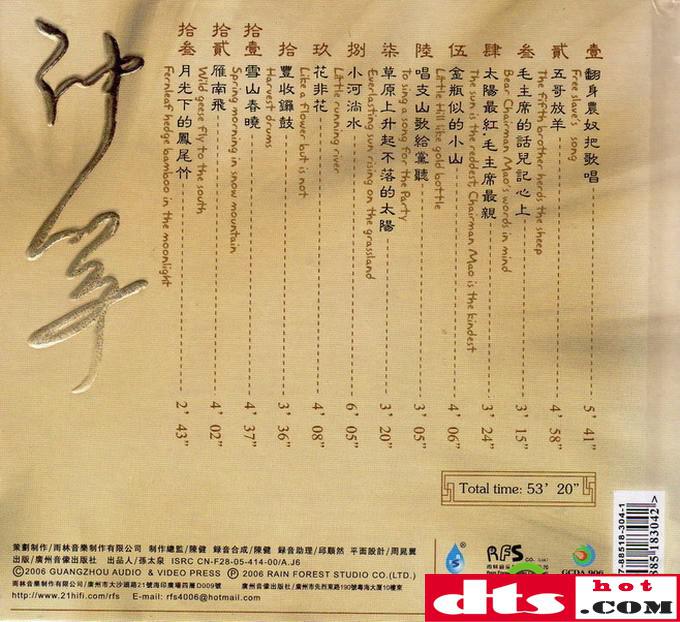 壹 翻身農奴把歌唱 5’ 41”
Free slave's song
貳 五哥放羊 4’ 58”
The fifth brother herds the sheep
叁 毛主席的話兒記心上 3’ 15”
Bear Chairman Mao's words in mind
肆 太陽最紅·毛主席最親 3’ 24”
The sun is the reddest, Chairman Mao is the kindest
伍 金瓶似的小山 4’ 06”
Little Hill like gold bottle
陸 唱支山歌給黨聽 3’ 05”
To sing a song for the Party
柒 草原上升起不落的太陽 3’ 20”
Everlasting sun rising on the grassland
捌 小河淌水 6’ 05”
Little running river
玖 花非花 4’ 08”
Like a flower but is not
拾 豐收鑼鼓 3’ 36”
Harvest drums
拾壹 雪山春曉 4’ 37”
Spring morning in snow mountain
拾貳 雁南飛 4’ 02”
Wild geese fly to the south
拾叁 月光下的鳳尾竹 2’ 43”
Fernleaf hedge bamboo in the moonlight
Total time: 53’ 20”
策劃制作/雨林音樂制作有限公司 制作總監/陳健 録音合成/陳健 録音助理/邱順然 平面設計/周晁翼
出版/廣州音像出版社 出品人/孫太泉 ISRC CN-F28-05-414-00/A.J6
©2006 GUANGZHOU AUDIO & VIDEO PRESS ℗ 2006 RAIN FOREST STUDIO CO.(LTD.)
雨林音樂制作有限公司/廣州市大沙頭路21號海印廣場四層D009號 廣州音像出版社/廣州市先烈東路190號粵海大廈
http://www.21hifi.com/rfs E-mail: rfs4006@hotmail.com
RFS
GCDA 906
7-88518-304-1
885183042>
dts
hot
.com